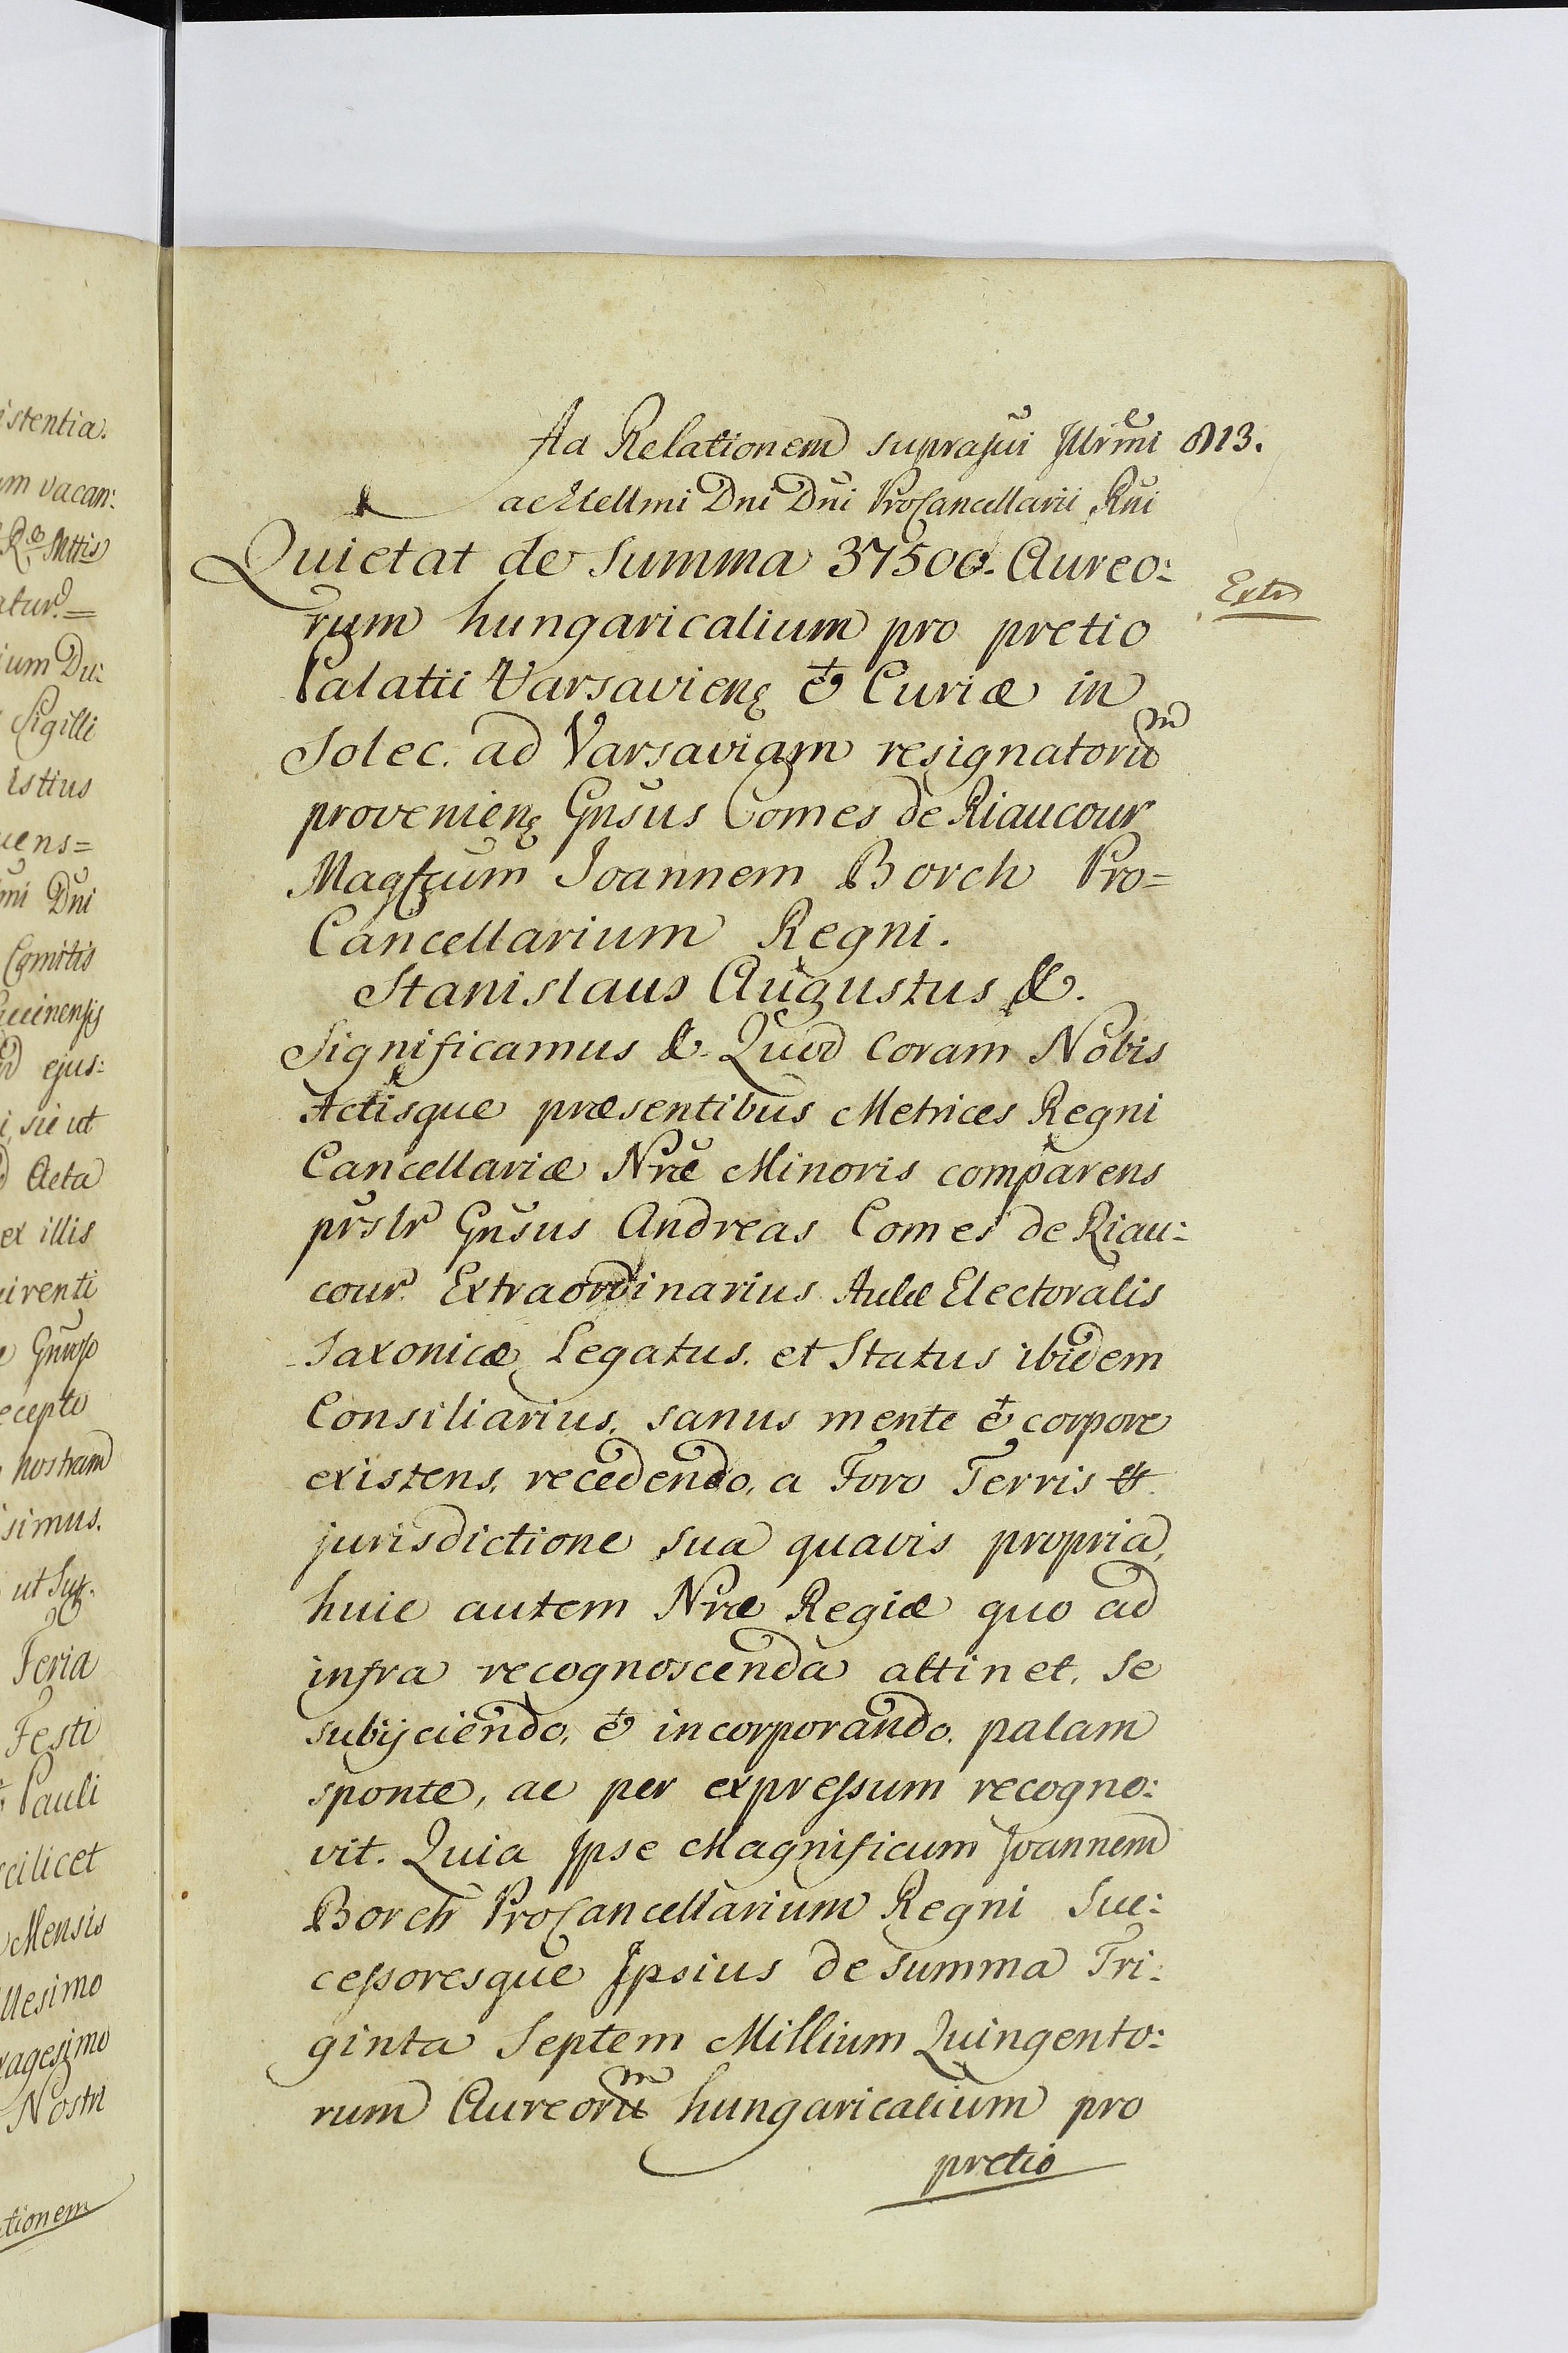 istentia.
um vacan:
Rę Mttis
atur. =
ium Du:
Sigilli
istius
uens=
mi Dni
Comitis
ejus:
i, sic ut
Acta
ex illis
uirenti
ecepto
nostram
simus.
ut Sup.
Feria
Festi
Pauli
scilicet
Mensis
llesimo
xagesimo
Nostri
tionem
Ad Relationem suprascui Jllrmi 813.
ac Excllmi Dni Dni ProCancellarii Rni
Quietat de Summa 37500. Aureo:
Extr
rum hungaricalium pro pretio
Palatii Varsavienę et Curiæ in
Solec. ad Varsaviam resignatorum
provenienę Gnsus Comes de Riaucour
Magfcum Joannem Borch Pro=
Cancellarium Regni.
Stanislaus Augustus &.
Significamus &. Quod Coram Nobis
Actisque præsentibus Metrices Regni
Cancellariæ Nræ Minoris comparens
prslr Gnsus Andreas Comes de Riau:
cour Extraordinarius Aulæ Electoralis
Saxonicæ Legatus, et Status ibidem
Consiliarius, sanus mente et corpore
existens, recedendo, a Foro Terris et
jurisdictione sua quavis propria,
huic autem Nræ Regiæ quo ad
infra recognoscenda attinet, se
subijciendo, et incorporando, palam
sponte, ac per expressum recogno:
vit. Quia Jpse Magnificum Joannem
Borch ProCancellarium Regni Suc:
cessoresque Jpsius de summa Tri:
ginta Septem Millium Quingento:
rum Aureorum hungaricalium pro
pretio